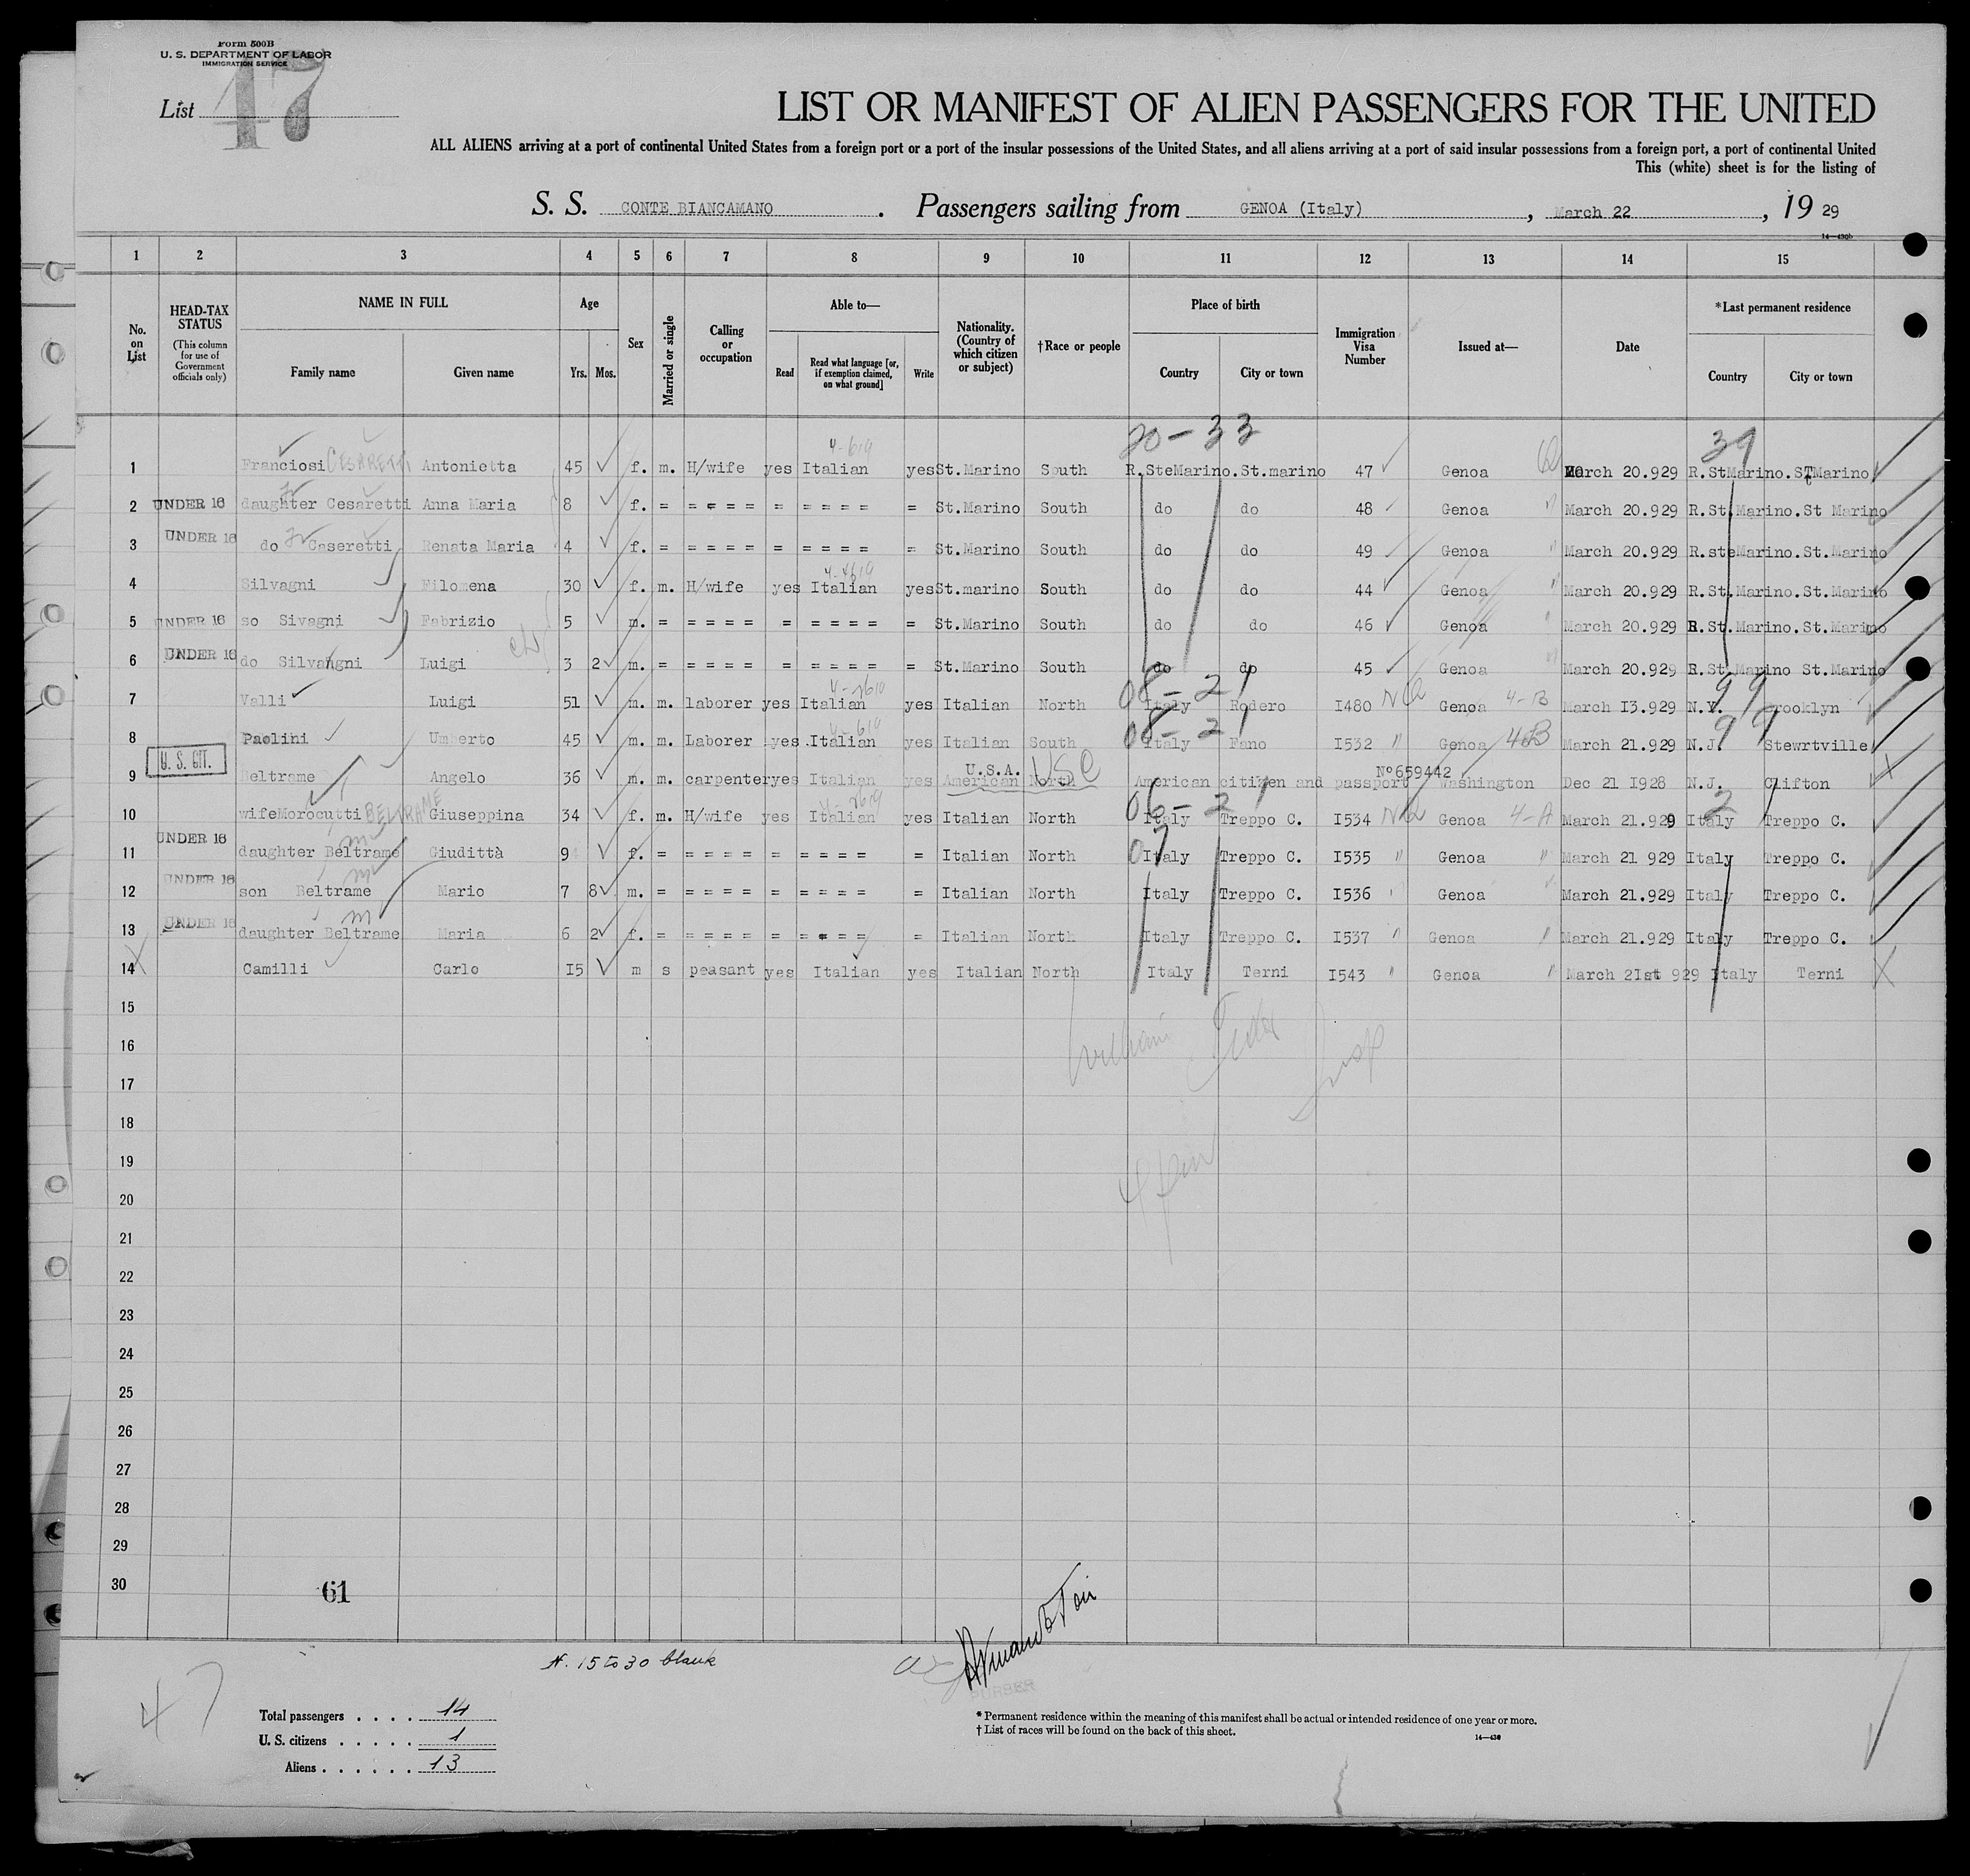 Form 500B
U. S. DEPARTMENT OF LABOR
IMMIGRATION SERVICE
List 47
LIST OR MANIFEST OF ALIEN PASSENGERS FOR THE UNITED
ALL ALIENS arriving at a port of continental United States from a foreign port or a port of the insular possessions of the United States, and all aliens arriving at a port of said insular possessions from a foreign port, a port of continental United
This (white) sheet is for the listing of
S. S. CONTE BIANCAMANO . Passengers sailing from GENOA (Italy) , March 22 , 19 29
14—430b
1 2 3 4 5 6 7 8 9 10 11 12 13 14 15
No. on List
HEAD-TAX STATUS (This column for use of Government officials only)
NAME IN FULL Family name Given name
Age Yrs. Mos.
Sex
Married or single
Calling or occupation
Able to— Read Read what language [or, if exemption claimed, on what ground] Write
Nationality. (Country of which citizen or subject)
†Race or people
Place of birth Country City or town
Immigration Visa Number
Issued at—
Date
*Last permanent residence Country City or town
4-619 20-33 39
1 Franciosi CESARETTI Antonietta 45 f. m. H/wife yes Italian yes St.Marino South R.SteMarino.St.marino 47 Genoa March 20.929 R.StMarino.STMarino
2 UNDER 16 daughter Cesaretti Anna Maria 8 f. = = = = = = = = = = = = St.Marino South do do 48 Genoa " March 20.929 R.St.Marino.St Marino
3 UNDER 16 do Caseretti Renata Maria 4 f. = = = = = = = = = = = = St.Marino South do do 49 Genoa " March 20.929 R.steMarino.St.Marino
4 Silvagni Filomena 30 f. m. H/wife yes Italian yes St.marino South do do 44 Genoa " March 20.929 R.St.Marino.St.Marino
5 UNDER 16 so Sivagni Fabrizio 5 m. = = = = = = = = = = = = = St.Marino South do do 46 Genoa " March 20.929 R.St.Marino.St.Marino
6 UNDER 16 do Silvangni Luigi 3 2 m. = = = = = = = = = = = = = St.Marino South do do 45 Genoa " March 20.929 R.St.Marino St.Marino
08-21 99
7 Valli Luigi 51 m. m. laborer yes Italian yes Italian North Italy Rodero I480 Genoa 4-B March I3.929 N.Y. Brooklyn
08-21 4-619 99
8 Paolini Umberto 45 m. m. Laborer yes Italian yes Italian South Italy Fano I532 " Genoa 4B March 21.929 N.J. Stewrtville
U. S. CIT.
U.S.A. USC Nº659442
9 Beltrame Angelo 36 m. m. carpenter yes Italian yes American North American citizen and passport Washington Dec 21 I928 N.J. Clifton
06-21 2
10 wife Morocutti BELTRAME Giuseppina 34 f. m. H/wife yes Italian yes Italian North Italy Treppo C. I534 Genoa 4-A March 21.929 Italy Treppo C.
07
11 UNDER 16 daughter Beltrame Giudittà 9 f. = = = = = = = = = = = Italian North Italy Treppo C. I535 " Genoa " March 21 929 Italy Treppo C.
12 UNDER 16 son Beltrame Mario 7 8 m. = = = = = = = = = = = Italian North Italy Treppo C. I536 Genoa " March 21.929 Italy Treppo C.
13 UNDER 16 daughter Beltrame Maria 6 2 f. = = = = = = = = = = = Italian North Italy Treppo C. I537 " Genoa " March 21.929 Italy Treppo C.
14 Camilli Carlo I5 m s peasant yes Italian yes Italian North Italy Terni I543 " Genoa " March 21st 929 Italy Terni
15
16
17
18
19
20
21
22
23
24
25
26
27
28
29
30
61
N. 15 to 30 blank
PURSER
47
Total passengers . . . . 14
U. S. citizens . . . . . 1
Aliens . . . . . . 13
* Permanent residence within the meaning of this manifest shall be actual or intended residence of one year or more.
† List of races will be found on the back of this sheet.
14—430